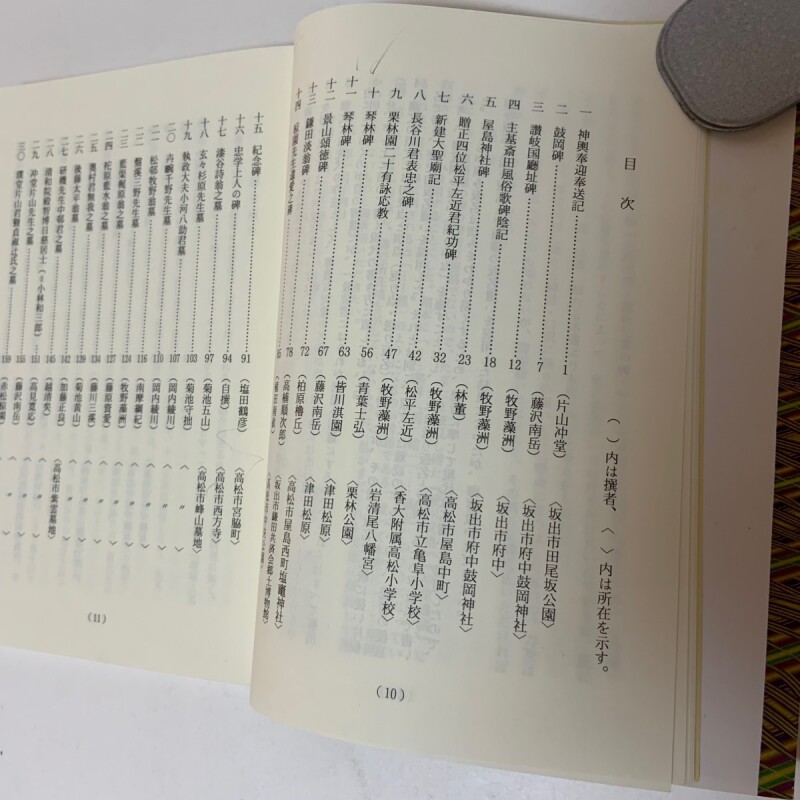 目次
（　）内は撰者、〈　〉内は所在を示す。
一　神輿奉迎奉送記……1（片山冲堂）〈坂出市田尾坂公園〉
二　鼓岡碑……7（藤沢南岳）〈坂出市府中鼓岡神社〉
三　讃岐国廳址碑……12（牧野藻洲）〈坂出市府中〉
四　主基斎田風俗歌碑陰記……18（牧野藻洲）
五　屋島神社碑……23（林董）〈高松市屋島中町〉
六　贈正四位松平左近君紀功碑……32（牧野藻洲）〈坂出市府中鼓岡神社〉
七　新建大聖廟記……42（松平左近）〈高松市立亀阜小学校〉
八　長谷川君表忠之碑……47（牧野藻洲）〈香大附属高松小学校〉
九　栗林園二十有詠応教……56（青葉士弘）〈岩清尾八幡宮〉
十　琴林碑……63（皆川淇園）〈栗林公園〉
十一　琴林碑……67（藤沢南岳）〈津田松原〉
十二　景山頌徳碑……72（柏原櫓丘）〈津田松原〉
十三　鎌田淡翁碑……78（高楠順次郎）〈高松市屋島西町塩竈神社〉
十四　〈坂出市鎌田共済会郷土博物館〉
(10)
十五　紀念碑……91（塩田鶴彦）〈高松市宮脇町〉
十六　忠学上人の碑……94（自撰）〈高松市西方寺〉
十七　漆谷詩翁之墓……97（菊池五山）〈高松市峰山墓地〉
十八　玄々杉原先生墓……103（菊池守拙）〈〃〉
十九　執政大夫小河八助君墓……107（岡内綾川）〈〃〉
二〇　千野先生墓……110（岡内綾川）〈〃〉
二一　松邨牧野翁墓……116（南摩綱紀）〈〃〉
二二　三野先生墓……124（牧野藻洲）〈〃〉
二三　藍渠梶原翁之墓……127（藤原資愛）〈〃〉
二四　柁原藍水翁之墓……134（藤川三渓）〈〃〉
二五　奥村君無我之墓……139（菊池黄山）〈〃〉
二六　後藤太平翁墓……142（加藤正良）〈〃〉
二七　研機先生中邨君之墓……145（越清矣）〈高松市紫雲墓地〉
二八　清和院殿智博日慈居士（＝小林和三郎）151（高見寛応）〈〃〉
二九　冲堂片山先生之墓……155（藤沢南岳）〈〃〉
三〇　159〈〃〉
(11)